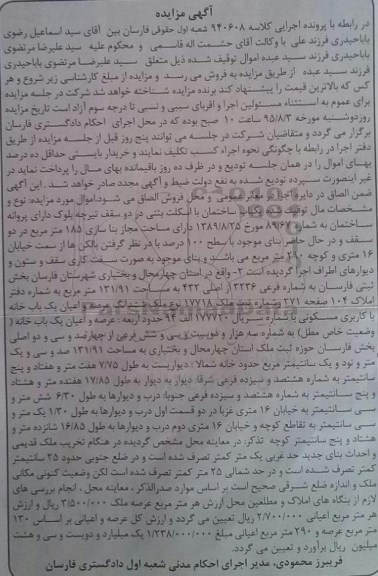 آگهی مزایده
در رابطه با پرونده اجرایی کلاسه ۹۴۰۶۰۸ شعبه اول حقوقی فارسان بین آقای سید اسماعیل رضوی
باباحیدری فرزند علی با وکالت آقای حشمت اله قاسمی و محکوم علیه سید علیرضا مرتضوی
باباحیدری فرزند سید عبده اموال توقیف شده ذیل متعلق سیدعلیرضا مرتضوی باباحیدری
فرزند سید عبده از طریق مزایده به فروش می رسد و مزایده از مبلغ کارشناسی زیر شروع و هر
کس که بالاترین قیمت را پیشنهاد کند برنده مزایده شناخته خواهد شد شرکت در جلسه مزایده
برای عموم به استثناء مسئولین اجرا و اقربای سببی و نسبی تا درجه سوم آزاد است تاریخ مزایده
روزدوشنبه مورخه ۹۵/۸/۳ ساعت ۱۰ صبح بوده که در محل اجرای احکام دادگستری فارسان
برگزار می گردد و متقاضیان شرکت در جلسه می توانند پنج روز قبل از جلسه مزایده از طریق
دفتر اجرا در رابطه با چگونگی نحوه اجراء کسب تکلیف نمایند و خریدار بایستی حداقل ده درصد
بهای اموال را در همان جلسه تودیع و در ظرف ده روز باقیمانده بهای مال را پرداخت نماید در
غیر اینصورت سپرده تودیع شده به نفع دولت ضبط و آگهی مجدد صادر خواهد شد . این آگهی
ضمن الصاق در دایره اجرا در معابر عمومی و محل فروش الصاق می شود.اموال مورد مزایده: نوع و
مشخصات مال توقیف شده: ساختمان با اسکلت بتنی در دو سقف تیرچه بلوک دارای پروانه
ساختمان به شماره ۸۹/۶۷ مورخ ۱۳۸۹/۸/۲۵ دارای مساحت مجاز بنا سازی ۱۸۵ متر مربع در دو
سقف و در حال حاضر بنای موجود با سطح ۱۰۰ درصد با در نظر گرفتن بالکن ها از سمت خیابان
۱۶ متری و کوچه ۲۹۰ متر مربع می باشد و بنای موجود به صورت سفت کاری سقف و ستون و
دیوارهای اطراف اجرا گردیده است ۲- واقع در استان چهارمحال و بختیاری شهرستان فارسان بخش
ثبتی فارسان به شماره فرعی ۲۲۳۶ از اصلی ۴۳۲ به مساحت ۱۳۱/۹۱ متر مربع به شماره دفتر
املاک ۱۰۴ صفحه ۲۷۱ شماره ثبت ملک ۱۷۷۱۸ نوع ملک ششدانگ عرصه و اعیان یک باب خانه
وضعیت خاص مطل) به شماره سه هزار و دویست و سی و شش فرعی از چهارصد و سی و دو اصلی
بخش فارسان حوزه ثبت ملک استان چهارمحال و بختیاری به مساحت ۱۳۱/۹۱ صد و سی و یک
متر و نود و یک سانتیمتر مربع حدود خانه شمالا : دیواریست به طول ۷/۷۵ هفت متر و هفتاد و پنج
سانتیمتر به شماره هشتصد و سیزده فرعی شرقا: دیوار به دیوار به طول ۱۷/۸۵ هفده متر و هشتاد
و پنج سانتیمتر به شماره هشتصد و سیزده فرعی جنوبا: درب و دیوارها به طول ۶/۳۰ شش متر و
سی سانتیمتر به خیابان ۱۶ متری غربا در دو قسمت اول درب و دیوارها به طول ۱/۳۰ یک متر و
سی سانتیمتر به تقاطع کوچه و خیابان ۱۶ متری دوم درب و دیوارها به طول ۱۶/۸۵ شانزده متر و
هشتاد و پنج سانتیمتر کوچه تذکر: در معاینه محل مشخص گردیده در هنگام تخریب ملک قدیمی
و احداث بنای جدید حد غربی یک متر کمتر تصرف شده است و در ضلع جنوبی حدود ۲۵ سانتیمتر
کمتر تصرف شده است و در حد شمالی ۲۵ متر کمتر تصرف شده است لکن وضعیت کنونی مکانی
ملک و اندازه ضلع شرقی صحیح است بر اساس موارد صدرالذکر ، معاینه محل ، انجام بررسی های
لازم از بنگاه های املاک و مطلعین محل ارزش هر متر مربع عرصه ملک ۳/۵۰۰/۰۰۰ ریال و ارزش
هر متر مربع اعیانی ۲/۷۰۰/۰۰۰ ریال تعیین می گردد و ارزش کل عرصه و اعیانی بر اساس ۱۳۰
متر مربع عرصه و ۲۹۰ متر مربع اعیانی مبلغ ۱/۲۳۸/۰۰۰/۰۰۰ یک میلیارد و دویست و سی و هشت
میلیون ریال برآورد و تعیین می گردد.
فریبرز محمودی، مدیر اجرای احکام مدنی شعبه اول دادگستری فارسان